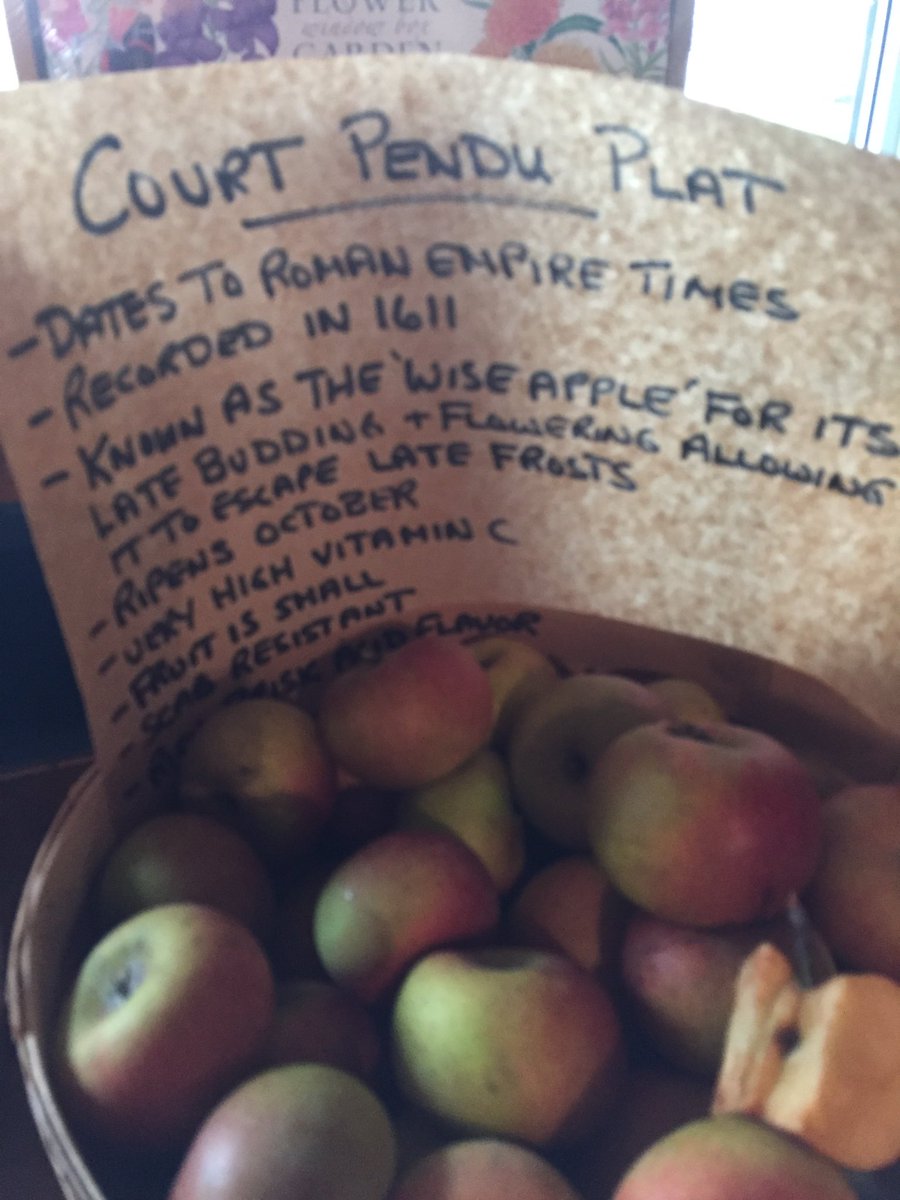 FLOWER
window box
GARDEN
COURT PENDU PLAT
- DATES TO ROMAN EMPIRE TIMES
- RECORDED IN 1611
- KNOWN AS THE 'WISE APPLE' FOR ITS
LATE BUDDING + FLOWERING ALLOWING
IT TO ESCAPE LATE FROSTS
- RIPENS OCTOBER
- VERY HIGH VITAMIN C
- FRUIT IS SMALL
- SCAB RESISTANT
BRISK ACID FLAVOR